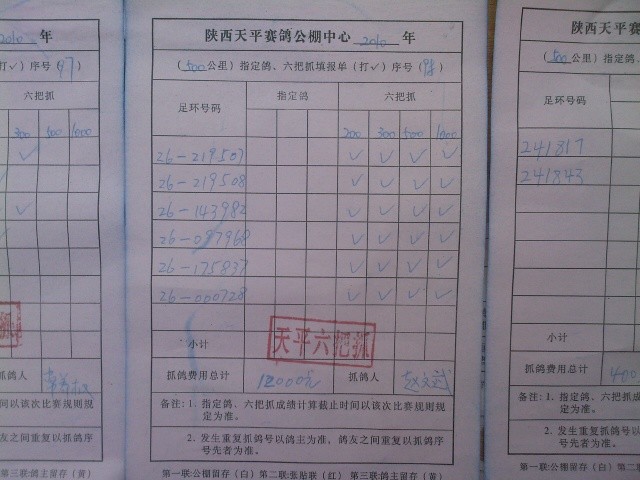 2010 年
打✓) 序号(97)
六把抓
300 500 1000
抓鸽人
间以该次比赛规则规
鸽友之间重复以抓鸽序
第三联:鸽主留存(黄)
陕西天平赛鸽公棚中心 2010 年
(500公里) 指定鸽、六把抓填报单(打✓) 序号(98)
足环号码 指定鸽 六把抓
200 300 500 1000
26-219507 ✓ ✓ ✓ ✓
26-219508 ✓ ✓ ✓ ✓
26-143982 ✓ ✓ ✓ ✓
26-097968 ✓ ✓ ✓ ✓
26-175837 ✓ ✓ ✓ ✓
26-000728 ✓ ✓ ✓ ✓
小计
天平六把抓
抓鸽费用总计 12000元 抓鸽人 赵文武
备注: 1、指定鸽、六把抓成绩计算截止时间以该次比赛规则规
定为准。
2、发生重复抓鸽号以鸽主为准, 鸽友之间重复以抓鸽序
号先者为准。
第一联:公棚留存(白) 第二联:张贴联(红) 第三联:鸽主留存(黄)
陕西天平赛
(500公里) 指定鸽、
足环号码
241817
241843
小计
抓鸽费用总计 400
备注: 1、指定鸽、
定为准。
2、发生重复
号先者为
第一联:公棚留存(白)